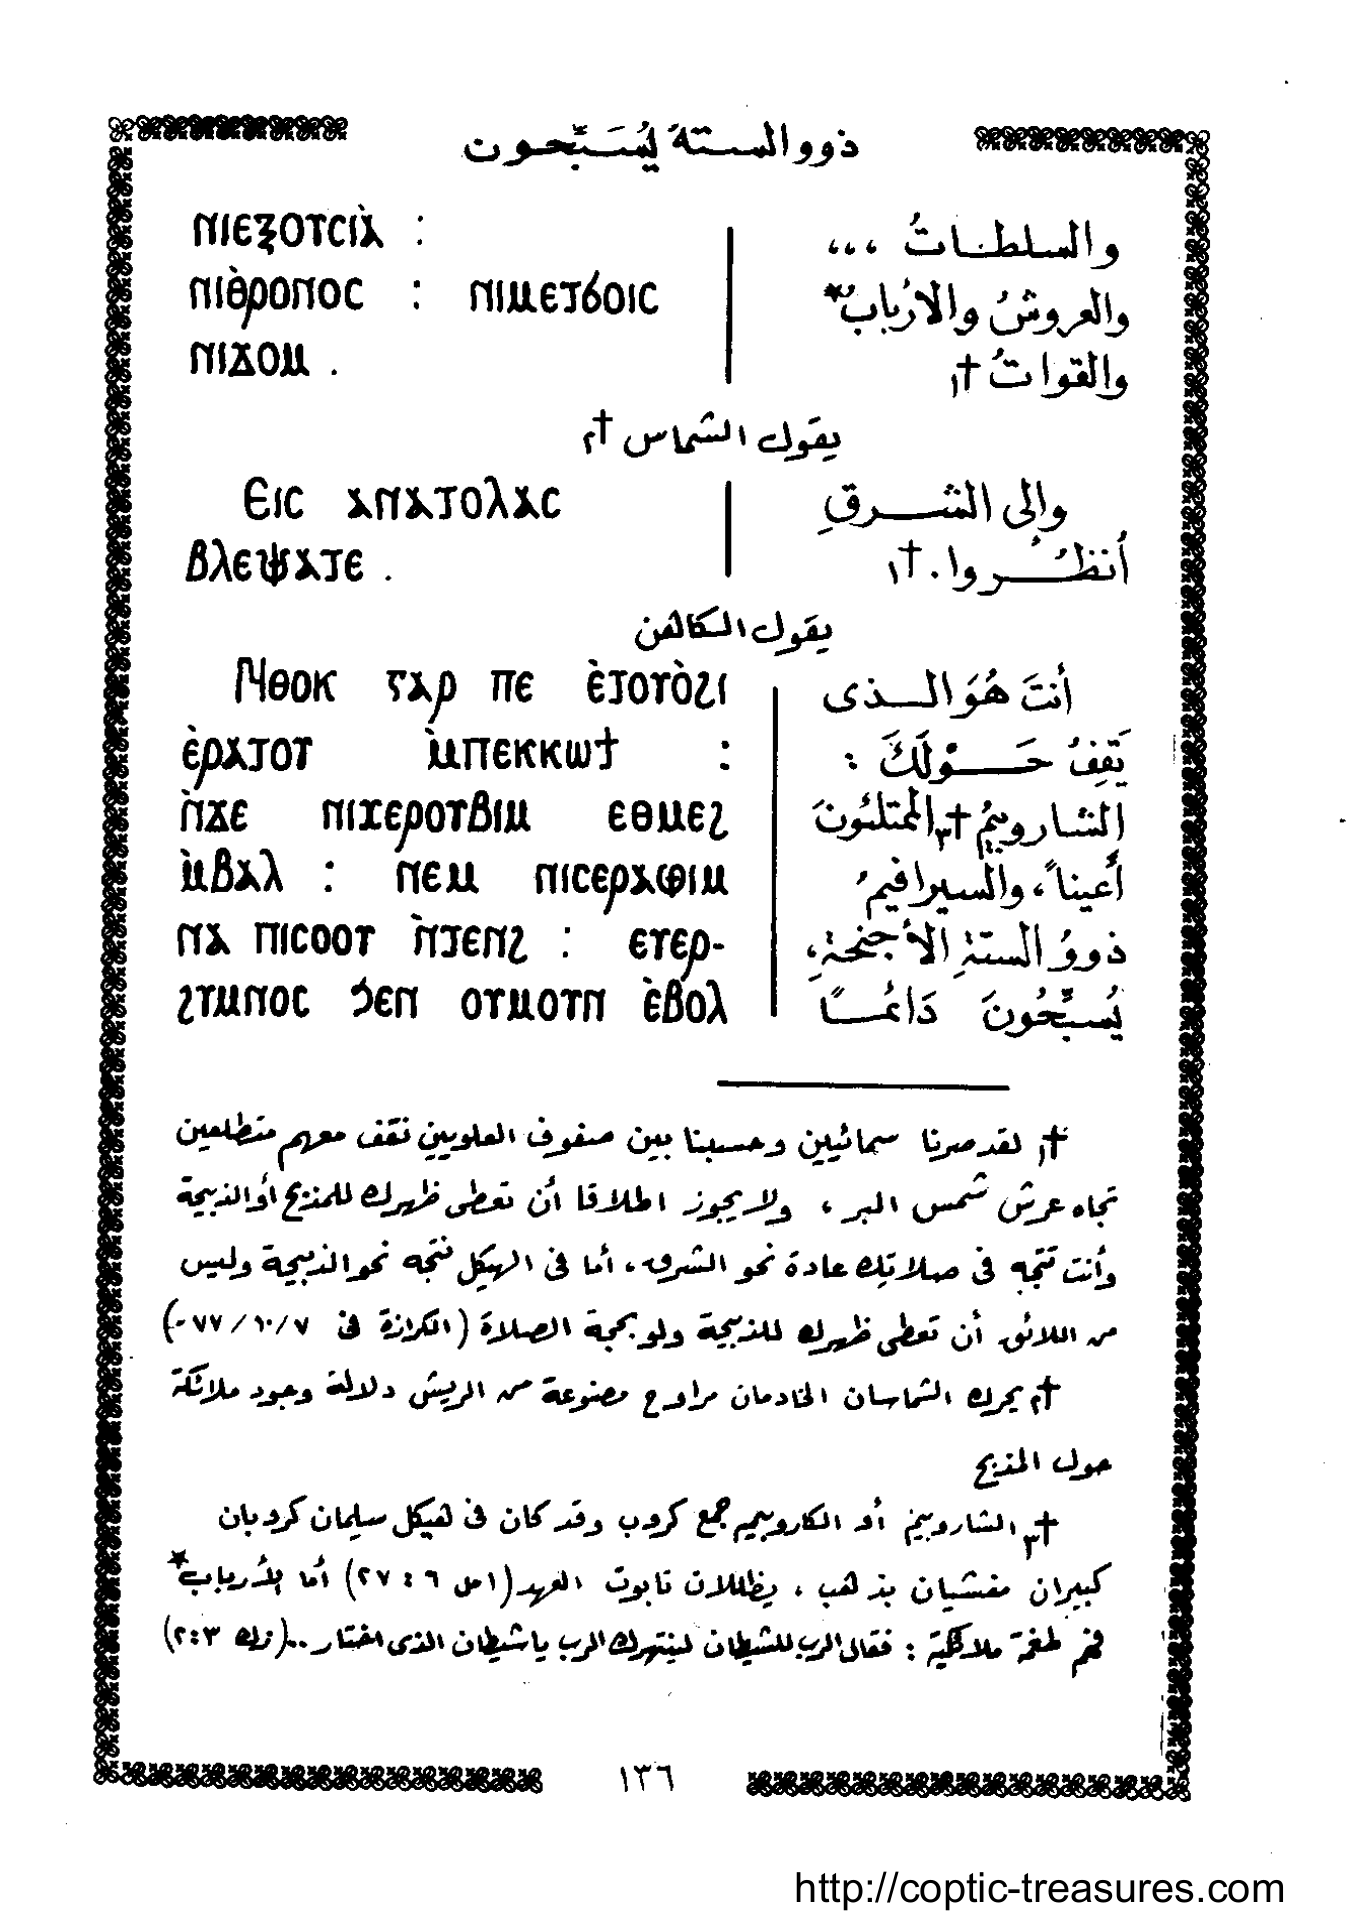 ذوو الستة يُسَبِّحون
ⲛⲓⲉⲝⲟⲩⲥⲓⲁ̀ :
ⲛⲓⲑ̀ⲣⲟⲛⲟⲥ : ⲛⲓⲙⲉⲧϭⲟⲓⲥ
ⲛⲓϫⲟⲙ .
والسلطنـاتُ ،،،
والعروشُ والأربابُ*
والقواتُ †١
يقول الشماس †٢
Ⲉⲓⲥ ⲁⲛⲁⲧⲟⲗⲁⲥ
ⲃⲗⲉⲯⲁⲧⲉ .
وإلى الشـــرقِ
أُنظُـــروا . †١
يقول الكاهن
Ⲛ̀ⲑⲟⲕ ⲅⲁⲣ ⲡⲉ ⲉ̀ⲧⲟⲩⲟ̀ϩⲓ
ⲉ̀ⲣⲁⲧⲟⲩ ⲙ̀ⲡⲉⲕⲕⲱϯ :
ⲛ̀ϫⲉ ⲛⲓⲭⲉⲣⲟⲩⲃⲓⲙ ⲉⲑⲙⲉϩ
ⲙ̀ⲃⲁⲗ : ⲛⲉⲙ ⲛⲓⲥⲉⲣⲁⲫⲓⲙ
ⲛⲁ ⲡⲓⲥⲟⲟⲩ ⲛ̀ⲧⲉⲛϩ : ⲉⲩⲉⲣ-
ϩⲩⲙⲛⲟⲥ ϧⲉⲛ ⲟⲩⲙⲟⲩⲛ ⲉ̀ⲃⲟⲗ
أنتَ هُوَ الـــذى
يَقِفُ حَـــوْلَكَ :
الشاروبيمُ †٣ الممتلئونَ
أعيناً ، والسيرافيمُ
ذوو الستةِ الأجنحةِ،
يُسبِّحُونَ دَائمـــًا
†١ لقد صرنا سمائيين وحسبنا بين صفوف العلويين نقف معهم متطلعين
تجاه عرش شمس البر ، ولا يجوز اطلاقا أن تعطى ظهرك للمذبح أو الذبيحة
وأنت تتجه فى صلاتك عادة نحو الشرق ، أما فى الهيكل فتتجه نحو الذبيحة وليس
من اللائق أن تعطى ظهرك للذبيحة ولو بحجة الصلاة (الكرازة فى ٧/١٠/٧٧ -)
†٢ يحرك الشماسان الخادمان مراوح مصنوعة من الريش دلالة وجود ملائكة
حول المذبح
†٣ الشاروبيم أو الكاروبيم جمع كروب وقد كان فى هيكل سليمان كروبان
كبيران مغشيان بذهب ، يظللان تابوت العهد (١مل ٦ : ٢٧) أما الأرباب*
فهم طغمة ملائكية : فقال الرب للشيطان لينتهرك الرب ياشيطان الذى اختار ..(زك ٣:٢)
١٣٦
http://coptic-treasures.com